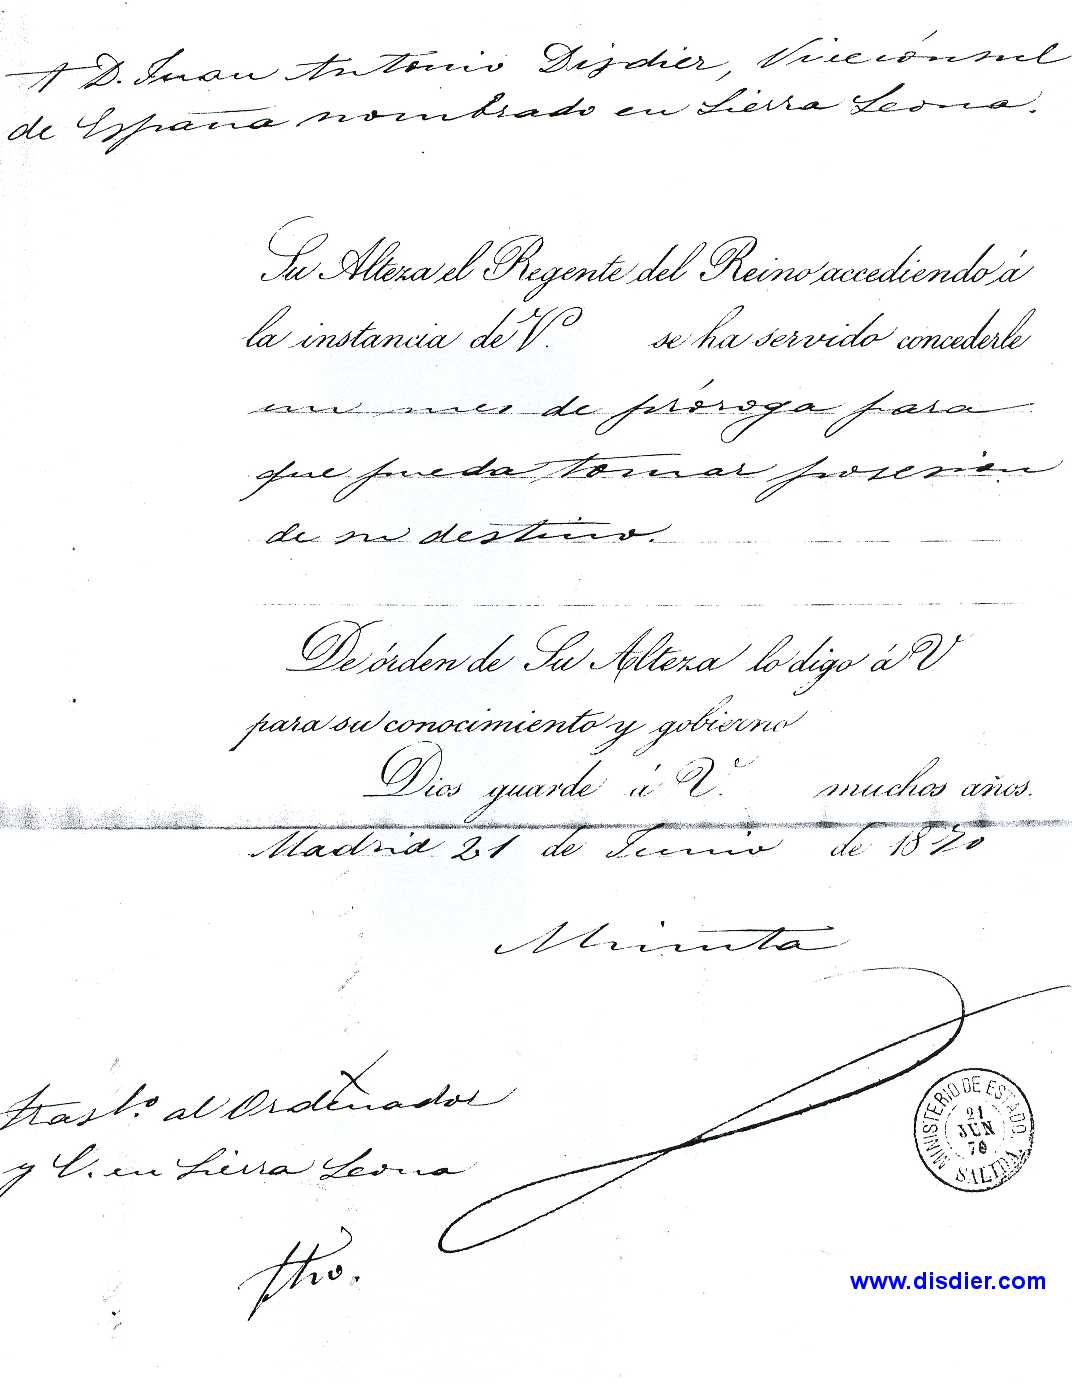 A D. Juan Antonio Disdier, Vicecónsul
de España nombrado en Sierra Leona.
Su Alteza el Regente del Reino accediendo á
la instancia de V. se ha servido concederle
un mes de próroga para
que pueda tomar posesion
de su destino.
De órden de Su Alteza lo digo á V
para su conocimiento y gobierno
Dios guarde á V. muchos años.
Madrid 21 de Junio de 1870
Minuta
MINISTERIO DE ESTADO.
21
JUN
70
SALIDA
Trasl.º al Ordenador
y V. en Sierra Leona
fho.
www.disdier.com